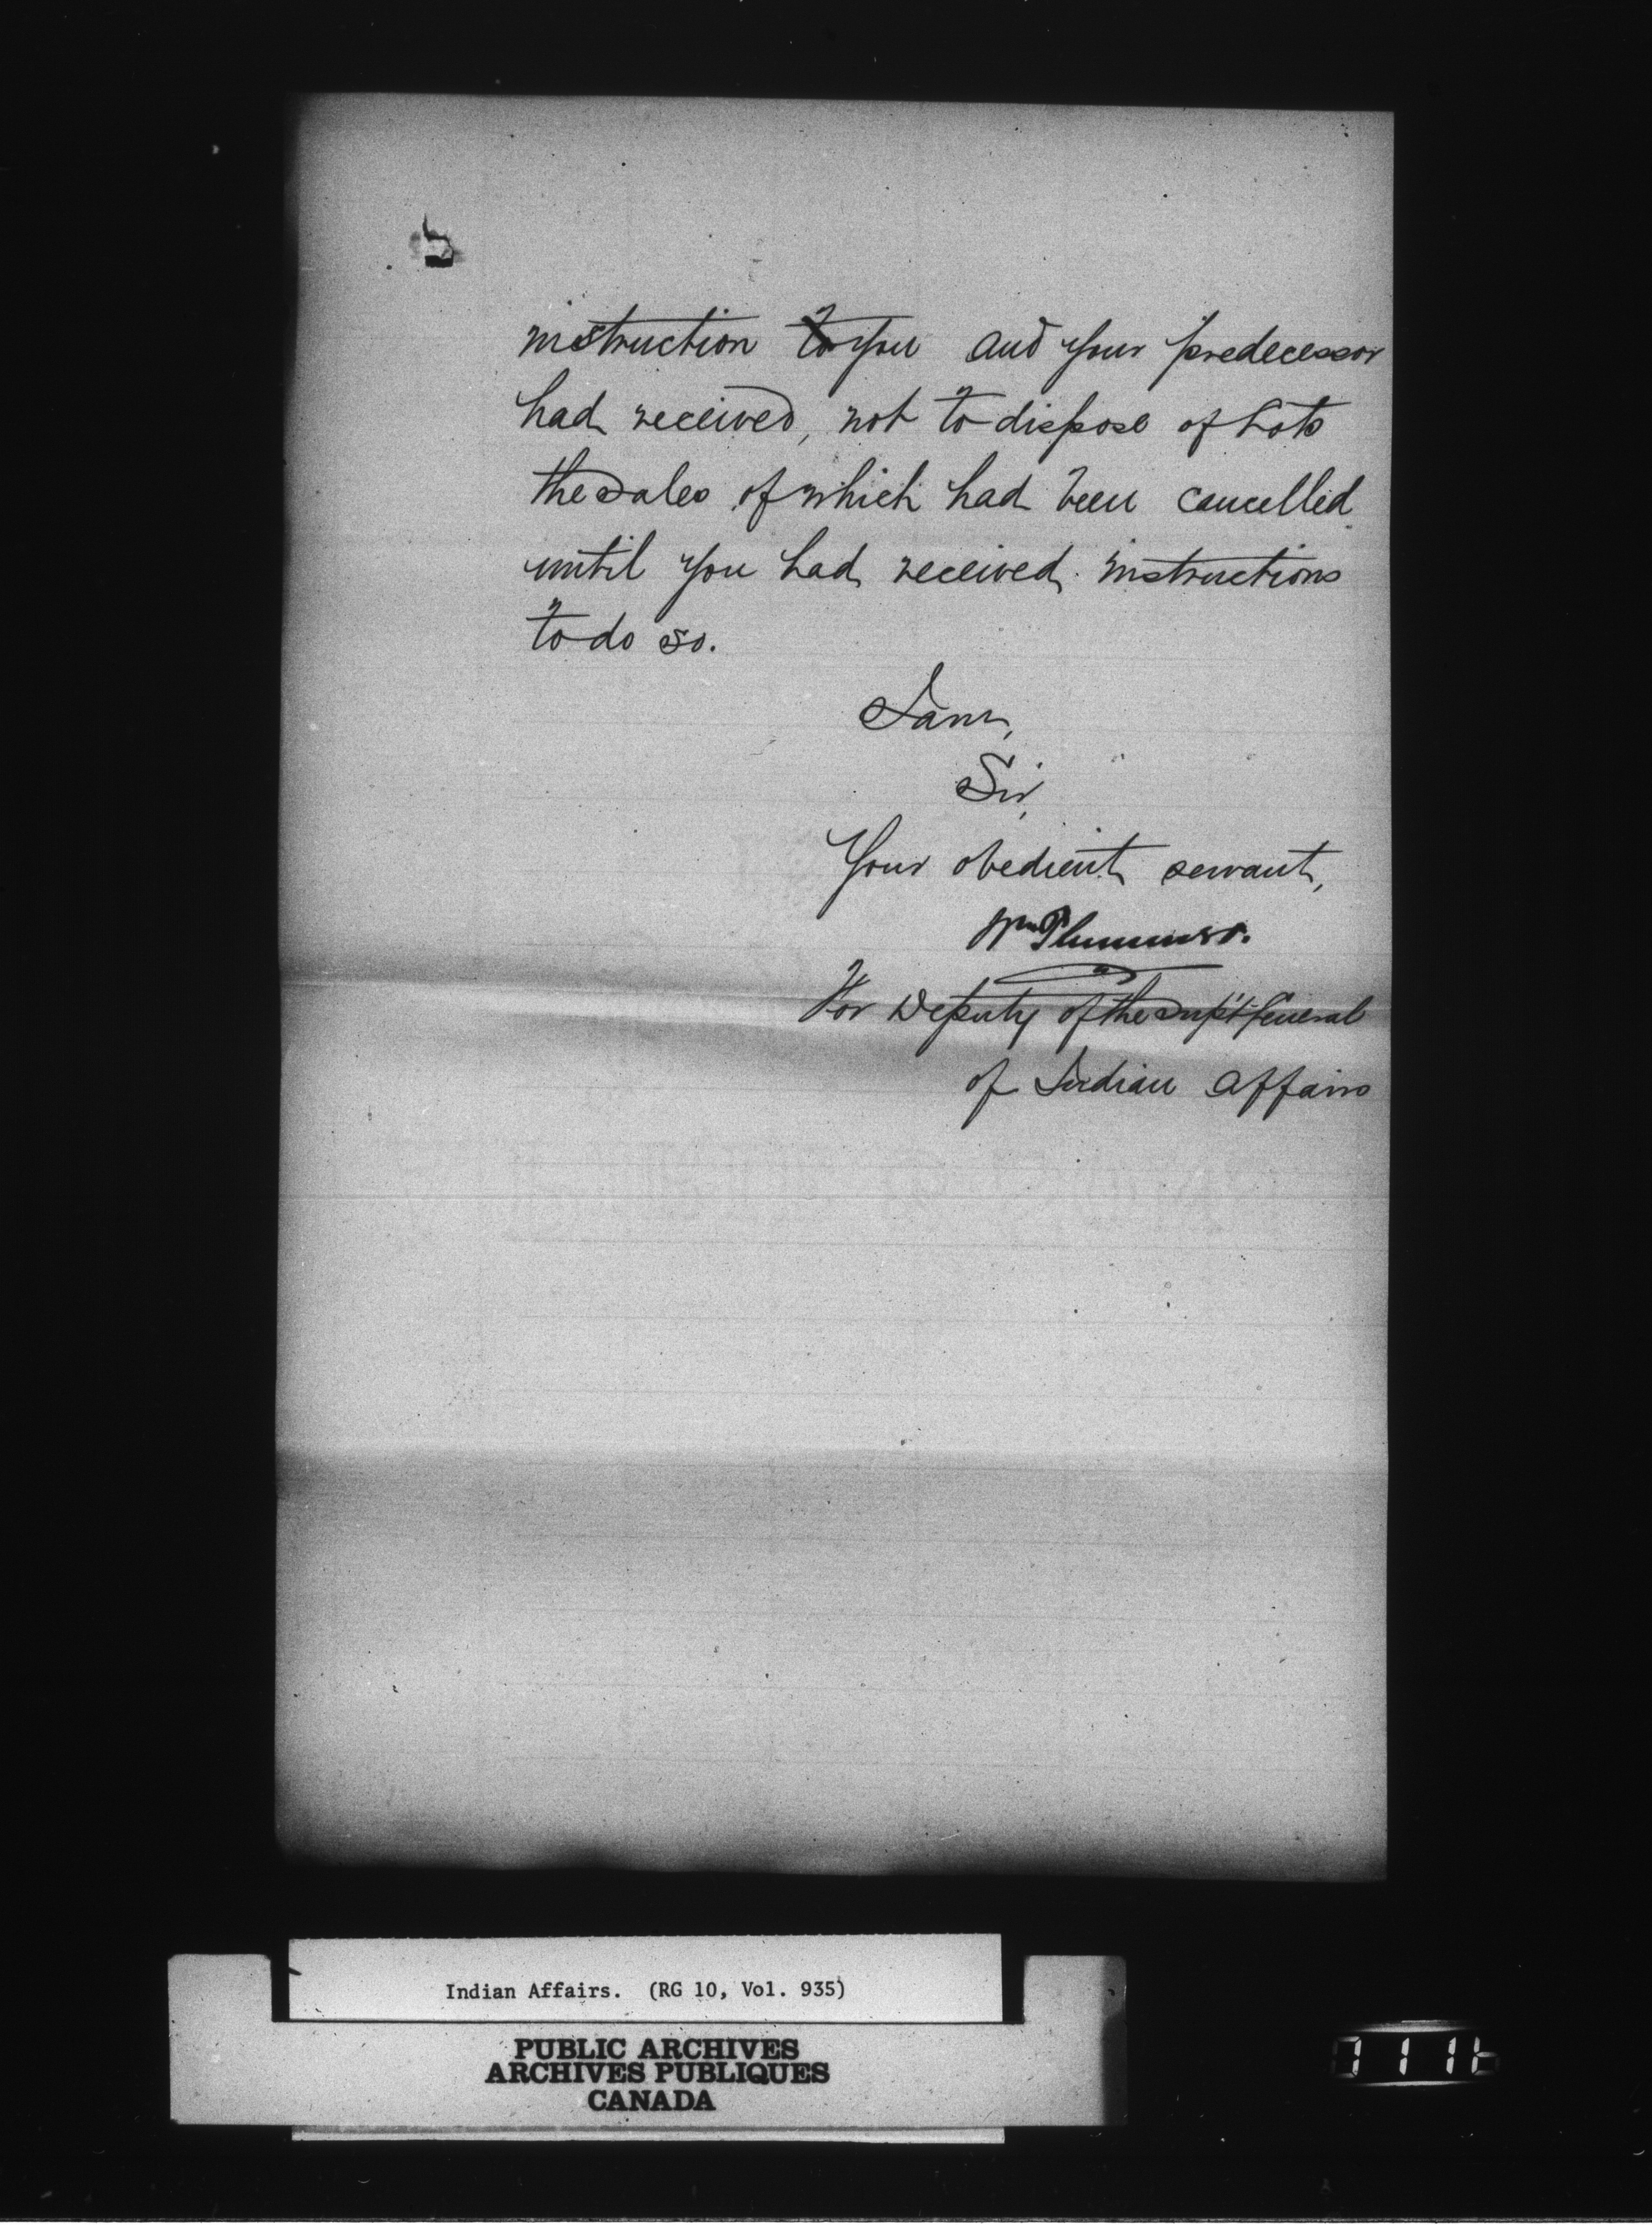 instruction to you and your predecessor
had received, not to dispose of Lots
the sales of which had been cancelled
until you had received instructions
to do so.
I am,
Sir,
Your obedient servant,
Wm Plummer.
For Deputy of the Sup't General
of Indian Affairs
Indian Affairs. (RG 10, Vol. 935)
PUBLIC ARCHIVES
ARCHIVES PUBLIQUES
CANADA